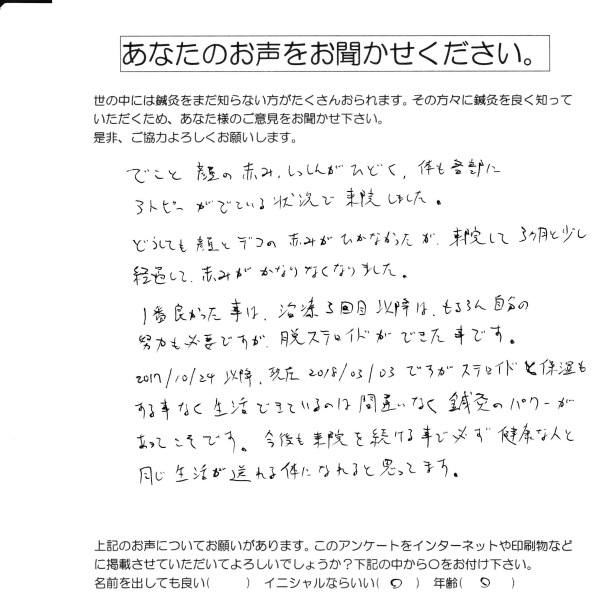 あなたのお声をお聞かせください。
世の中には鍼灸をまだ知らない方がたくさんおられます。その方々に鍼灸を良く知って
いただくため、あなた様のご意見をお聞かせ下さい。
是非、ご協力よろしくお願いします。
でこと 顔の 赤み、しっしんが ひどく、体も 各部に
アトピー がでている 状況で 来院しました。
どうしても 顔とデコの 赤みが ひかなかったが、来院して 3ヶ月と少し
経過して、赤みが かなりなくなりました。
1番良かった事は、治療5回目以降は、もちろん自分の
努力も必要ですが、脱ステロイドが できた事です。
2017/10/24 以降、現在 2018/03/03 ですが ステロイドと 保湿も
する事なく 生活できているのは 間違いなく 鍼灸の パワーが
あってこそです。今後も 来院を続ける事で 必ず 健康な人と
同じ生活が 送れる体になれると思ってます。
上記のお声についてお願いがあります。このアンケートをインターネットや印刷物など
に掲載させていただいてよろしいでしょうか？下記の中から○をお付け下さい。
名前を出しても良い( ) イニシャルならいい( ○ ) 年齢( ○ )